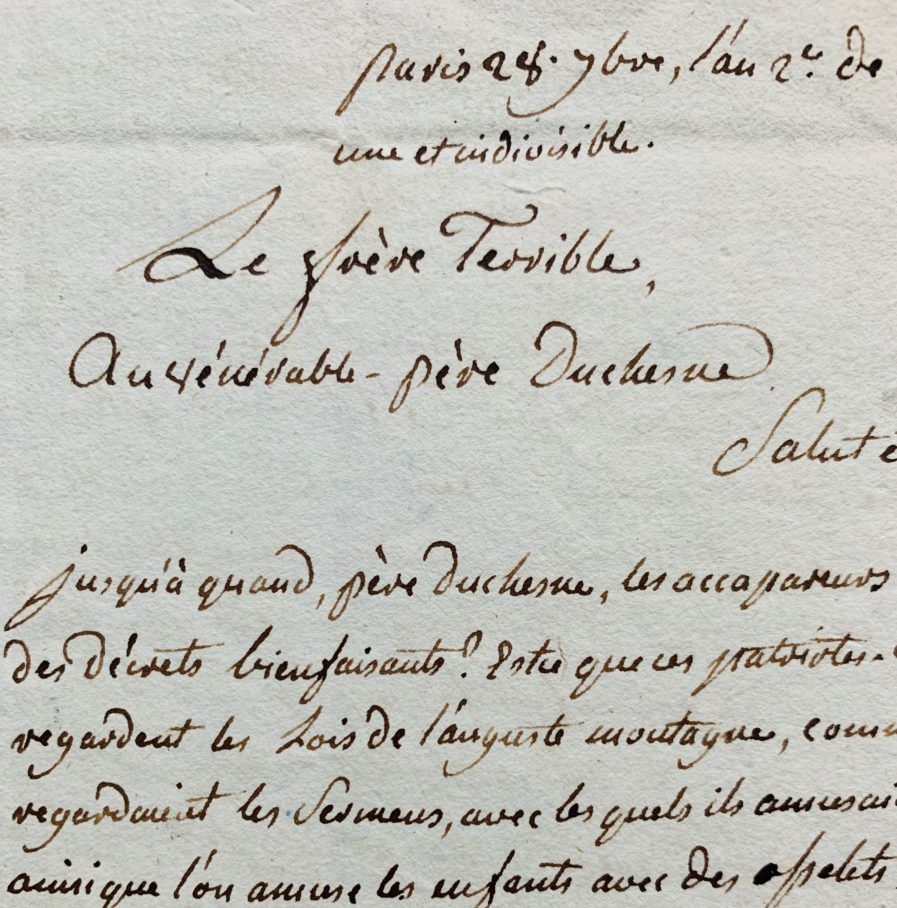 Paris 28. 7bre, l'an 2e. de
une et indivisible.
Le frère Terrible,
Au vénérable père Duchesne
Salut e
jusqu'à quand, père Duchesne, les accapareurs
des décrets bienfaisants? Estce que ces patriotes-
regardent les Lois de l'auguste montagne, comm
regardaient les Sermens, avec les quels ils amusai
ainsi que l'on amuse les enfants avec des osselets